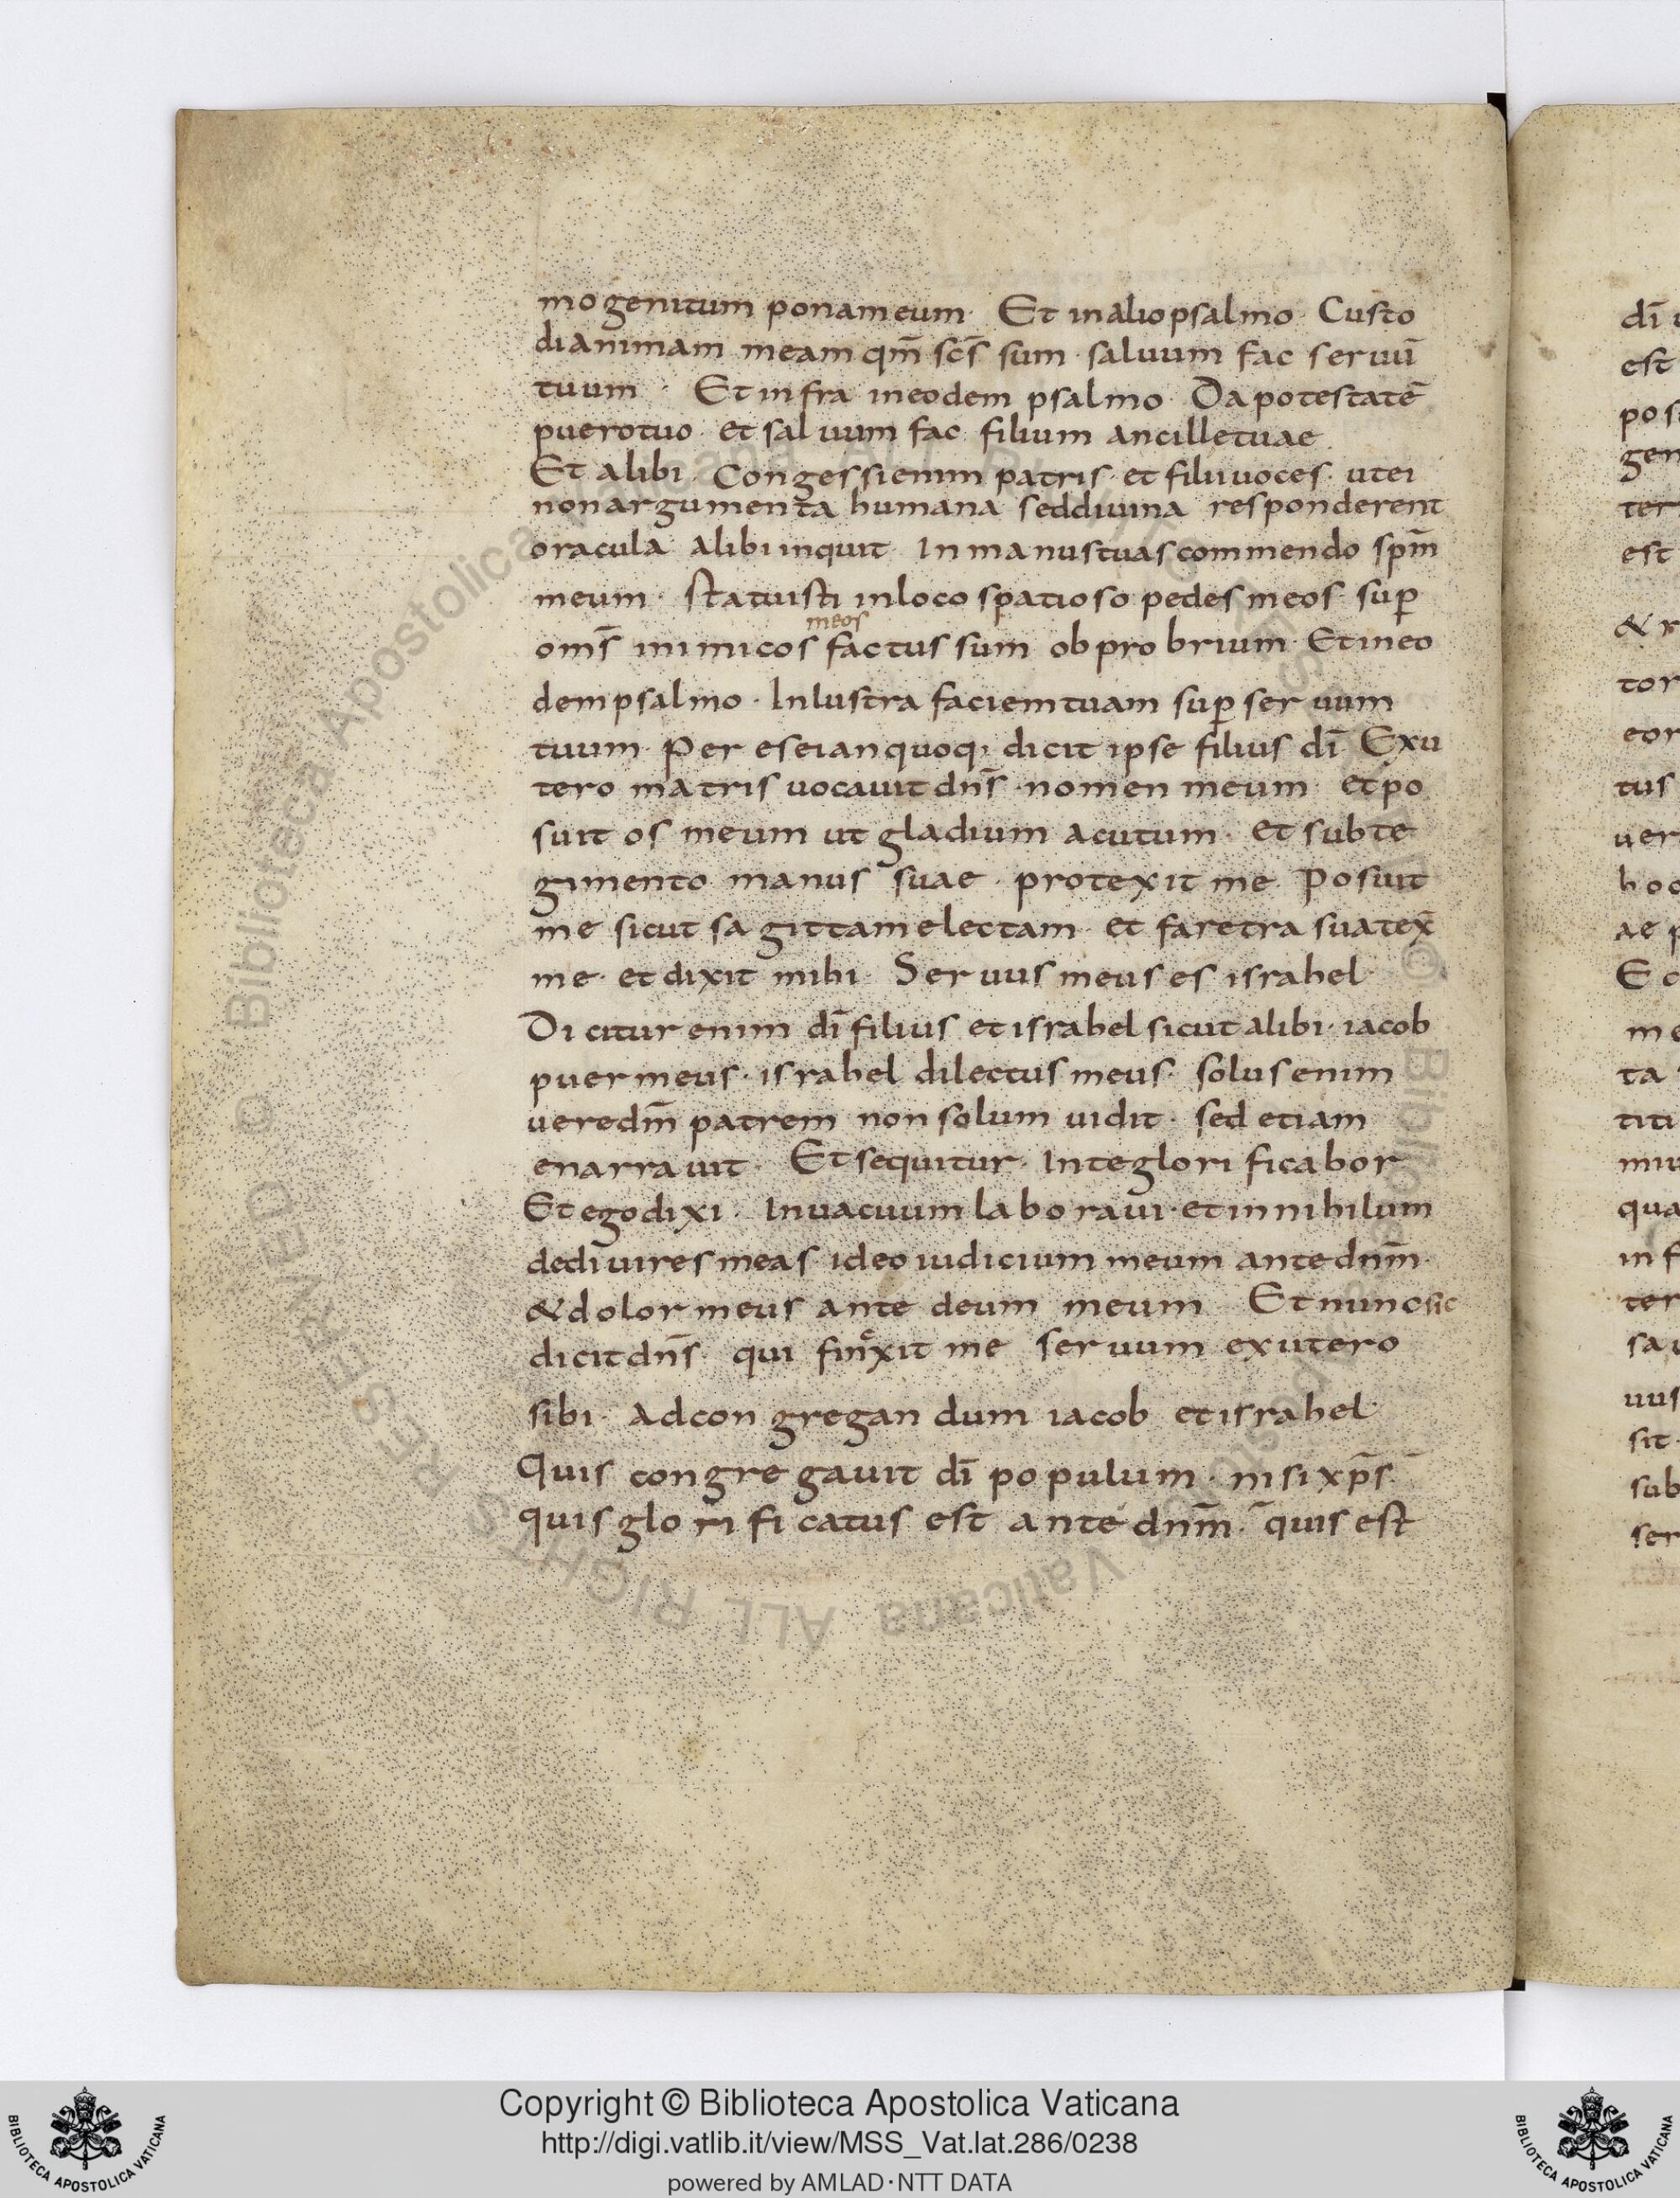 mogenitum ponam eum · Et in alio psalmo · Custo
di animam meam qm̄ scs̄ sum · saluum fac seruū
tuum · Et infra in eodem psalmo · Da potestatē
puero tuo · et saluum fac filium ancille tuae
Et alibi · Congessi enim patris · et filii uoces · ut ei
non argumenta humana sed diuina responderent
oracula alibi inquit In manus tuas commendo spm̄
meum · statuisti in loco spatioso pedes meos · sup̱
meos
oms̄ inimicos factus sum obprobrium · Et in eo
dem psalmo · Inlustra faciem tuam sup̱ seruum
tuum · Per eseian quoq; dicit ipse filius dī Ex u
tero matris uocauit dns̄ · nomen meum · et po
suit os meum ut gladium acutum · et sub te
gimento manus suae · protexit me Posuit
me sicut sagittam electam · et faretra sua tex̄
me · et dixit mihi · Seruus meus es israhel ·
Dicitur enim dī filius et israhel sicut alibi · iacob
puer meus · israhel dilectus meus · solus enim
uere dm̄ patrem non solum uidit · sed etiam
enarrauit · Et sequitur · In te glorificabor
Et ego dixi · In uacuum laboraui · et in nihilum
dedi uires meas · ideo iudicium meum ante dnm̄ ·
& dolor meus ante deum meum Et nunc sic
dicit dns̄ · qui finxit me seruum ex utero
sibi · Ad congregandum iacob et israhel ·
Quis congregauit dī populum · nisi xps̄ ·
quis glorificatus est ante dnm̄ · quis est
dī
est
ter
est
tor
tus
uer
ae
me
ta
titi
qua
ter
uus
sit
sub
ser
© Biblioteca Apostolica Vaticana ALL RIGHTS RESERVED
Copyright © Biblioteca Apostolica Vaticana
http://digi.vatlib.it/view/MSS_Vat.lat.286/0238
powered by AMLAD·NTT DATA
BIBLIOTECA APOSTOLICA VATICANA
BIBLIOTECA APOSTOLICA VATICANA